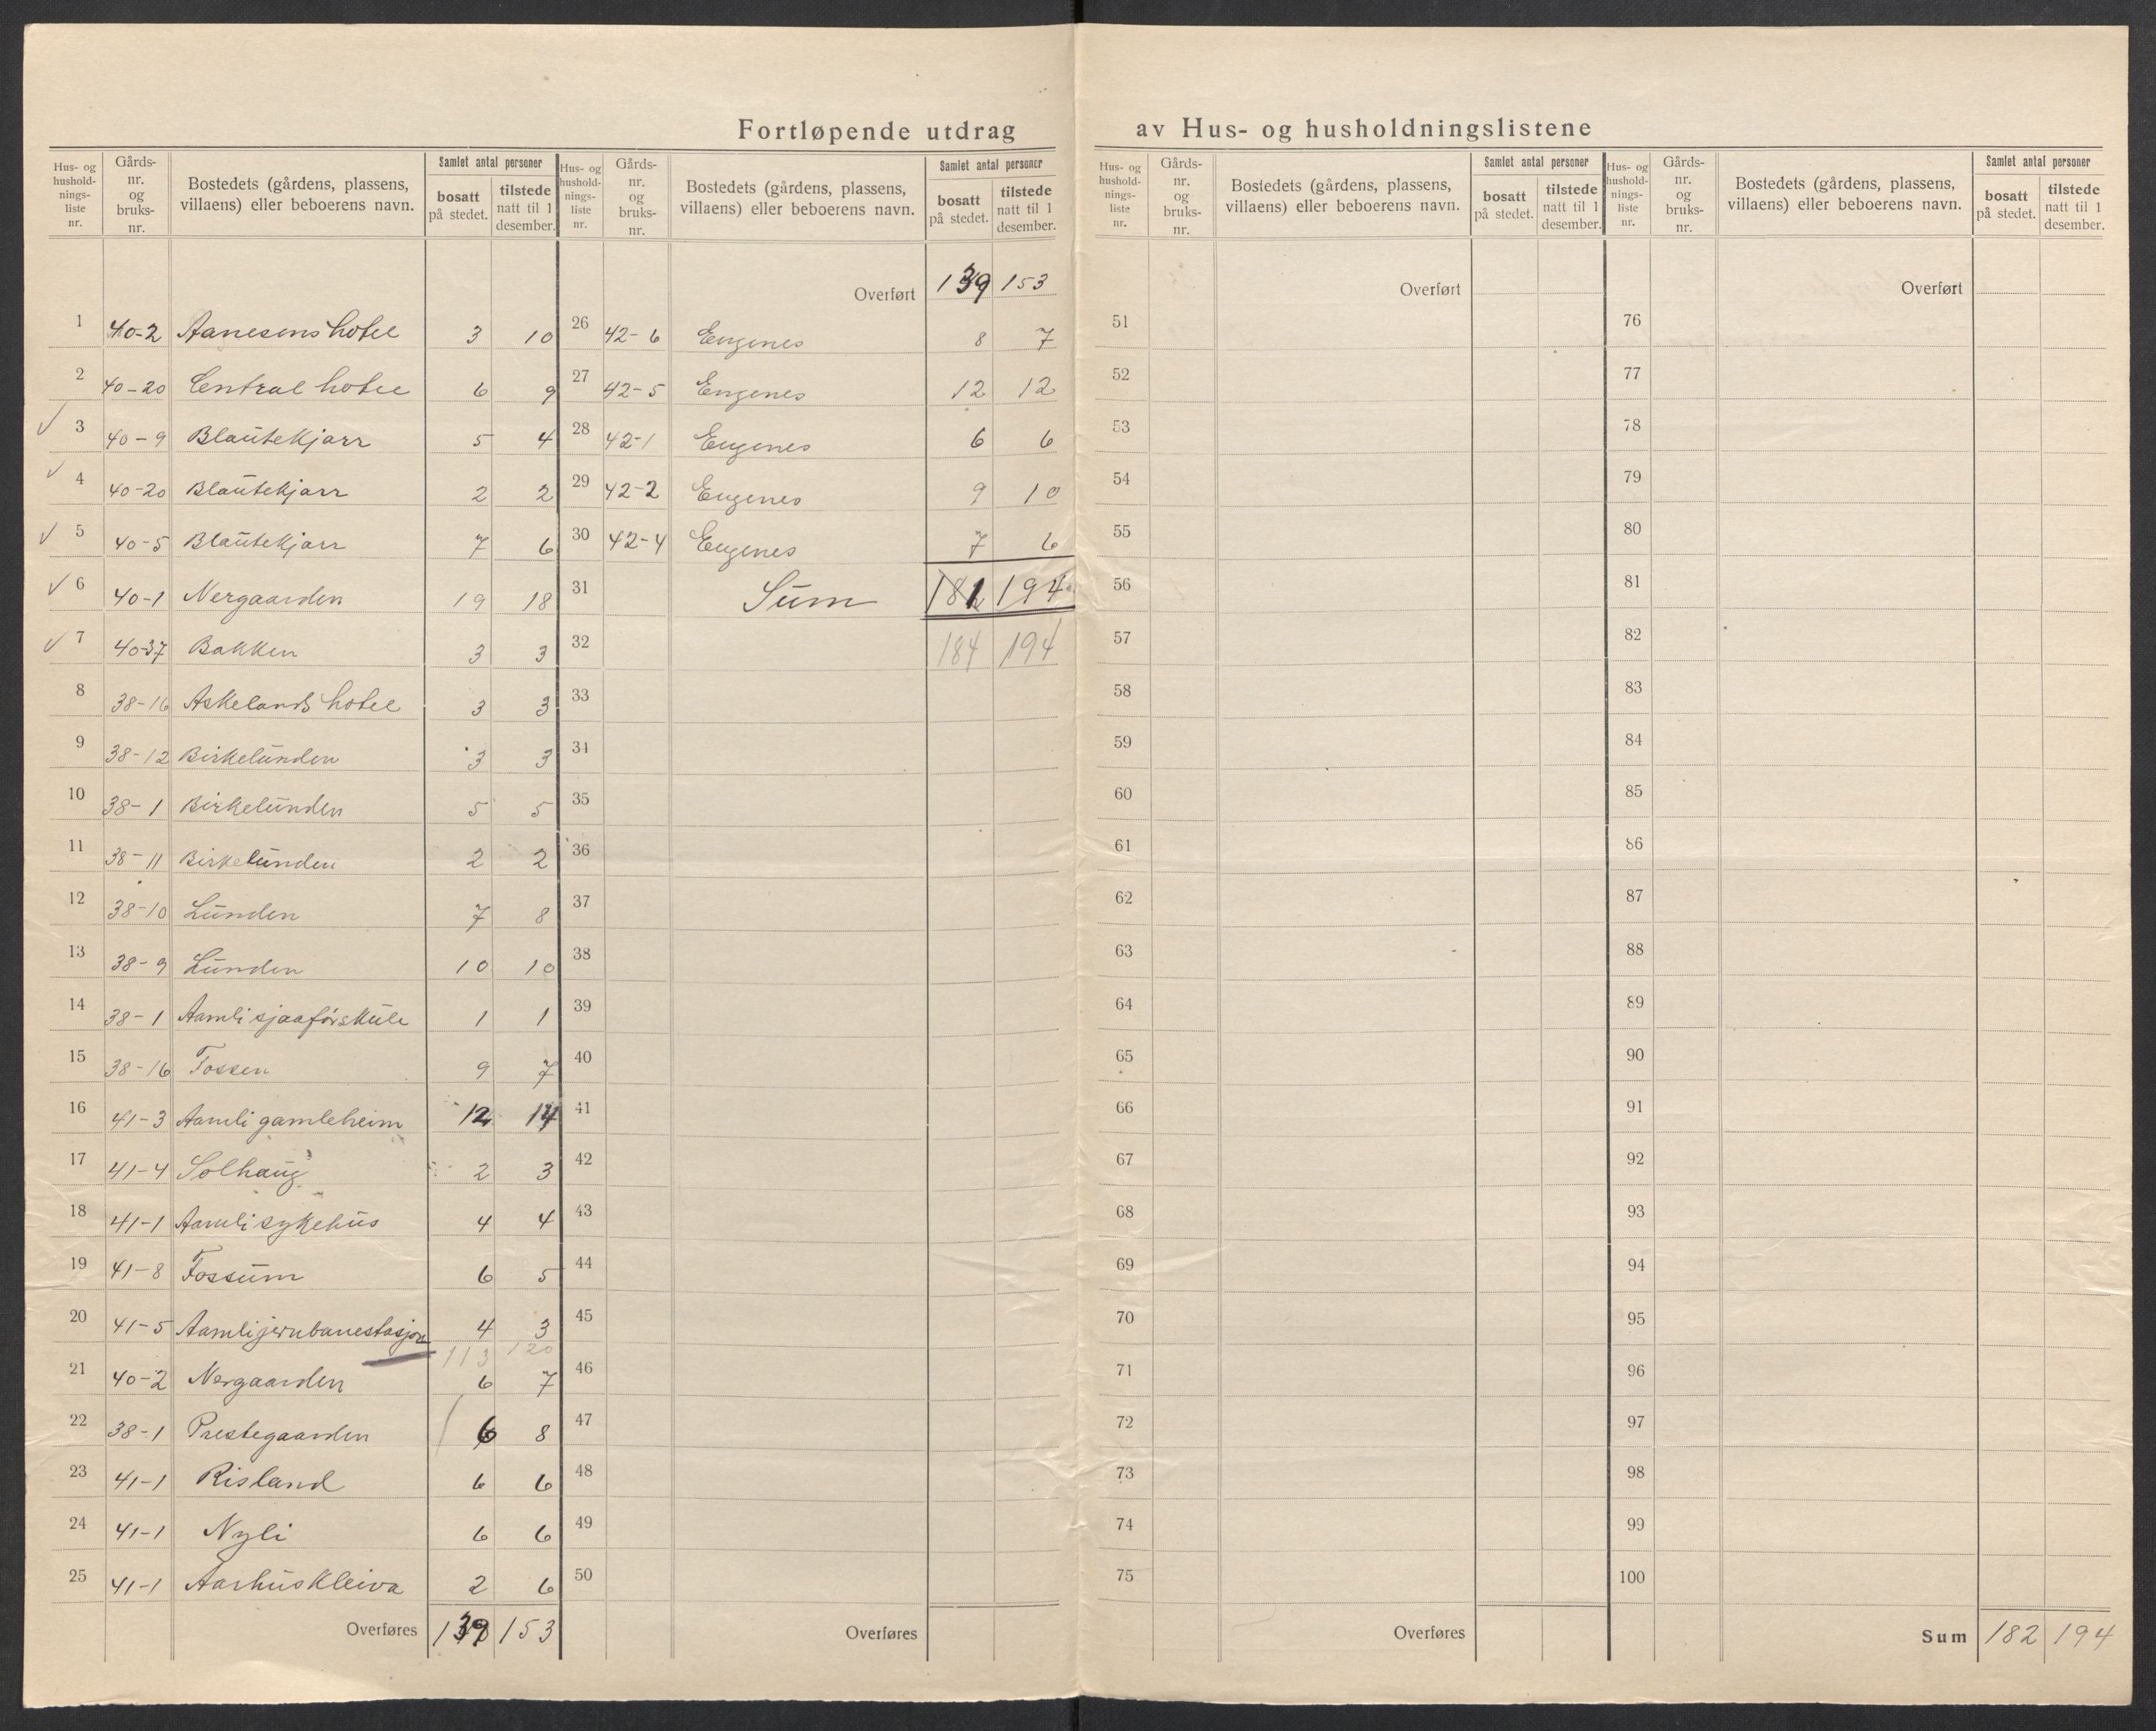 Fortløpende utdrag av Hus- og husholdningslistene
Hus- og hushold- nings- liste nr. Gårds- nr. og bruks- nr. Bostedets (gårdens, plassens, villaens) eller beboerens navn. Samlet antal personer bosatt på stedet. tilstede natt til 1 desember.
1 40-2 Aanesens hotel 3 10
2 40-20 Central hotel 6 9
✓ 3 40-9 Blautekjarr 5 4
✓ 4 40-20 Blautekjarr 2 2
✓ 5 40-5 Blautekjarr 7 6
✓ 6 40-1 Nergaarden 19 18
✓ 7 40-37 Bakken 3 3
8 38-16 Askelands hotel 3 3
9 38-12 Birkelunden 3 3
10 38-1 Birkelunden 5 5
11 38-11 Birkelunden 2 2
12 38-10 Lunden 7 8
13 38-9 Lunden 10 10
14 38-1 Aamli sjaaførskule 1 1
15 38-16 Fossen 9 7
16 41-3 Aamli gamleheim 12 14
17 41-4 Solhaug 2 3
18 41-1 Aamli sykehus 4 4
19 41-8 Fossum 6 5
20 41-5 Aamli jernbanestasjon 4 3
113 120
21 40-2 Nergaarden 6 7
22 38-1 Prestegaarden 6 8
23 41-1 Risland 6 6
24 41-1 Nyli 6 6
25 41-1 Aarhuskleiva 2 6
Overføres 139 153
Hus- og hushold- nings- liste nr. Gårds- nr. og bruks- nr. Bostedets (gårdens, plassens, villaens) eller beboerens navn. Samlet antal personer bosatt på stedet. tilstede natt til 1 desember.
Overført 139 153
26 42-6 Engenes 8 7
27 42-5 Engenes 12 12
28 42-1 Engenes 6 6
29 42-2 Engenes 9 10
30 42-4 Engenes 7 6
31 Sum 181 194
32 184 194
33
34
35
36
37
38
39
40
41
42
43
44
45
46
47
48
49
50
Overføres
Hus- og hushold- nings- liste nr. Gårds- nr. og bruks- nr. Bostedets (gårdens, plassens, villaens) eller beboerens navn. Samlet antal personer bosatt på stedet. tilstede natt til 1 desember.
Overført
51
52
53
54
55
56
57
58
59
60
61
62
63
64
65
66
67
68
69
70
71
72
73
74
75
Overføres
Hus- og hushold- nings- liste nr. Gårds- nr. og bruks- nr. Bostedets (gårdens, plassens, villaens) eller beboerens navn. Samlet antal personer bosatt på stedet. tilstede natt til 1 desember.
Overført
76
77
78
79
80
81
82
83
84
85
86
87
88
89
90
91
92
93
94
95
96
97
98
99
100
Sum 182 194